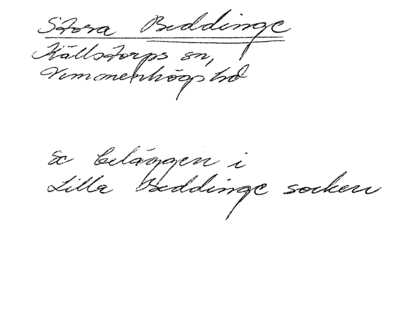 Stora Beddinge
Källstorps sn,
Vemmenhögs hd
Se beläggen i
Lilla Beddinge socken